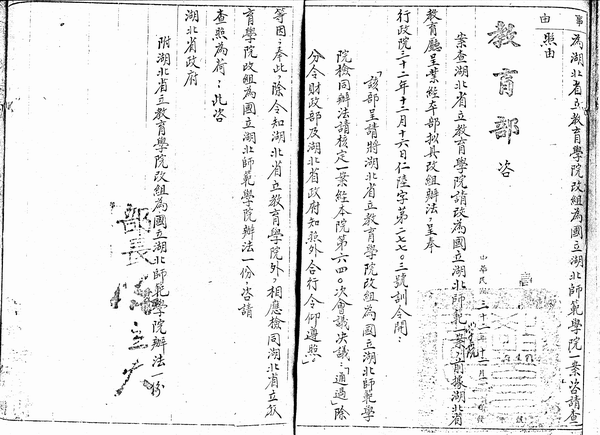 事
由
為湖北省立教育學院改組為國立湖北師範學院一案咨請查
照由
教育部 咨
中華民國三十二年十二月
案查湖北省立教育學院請改為國立湖北師範學院一案，前據湖北省
教育廳呈業經本部擬具改組辦法，呈奉
行政院三十二年十一月十六日仁陸字第二七七〇三號訓令開：
「該部呈請將湖北省立教育學院改組為國立湖北師範學
院檢同辦法請核定一案經本院第六四〇次會議決議：「通過」除
分令財政部及湖北省政府知照外合行令仰遵照。」
等因：奉此，除令知湖北省立教育學院外，相應檢同湖北省立教
育學院改組為國立湖北師範學院辦法一份，咨請
查照為荷：此咨
湖北省政府
附湖北省立教育學院改組為國立湖北師範學院辦法一份
部長 陳立夫